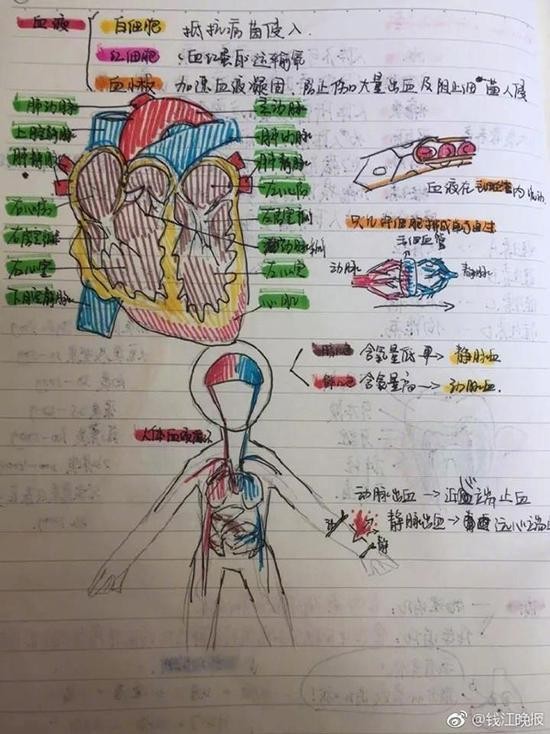 血液
白细胞 抵抗病菌侵入
红细胞 血红蛋白运输氧
血小板 加速血液凝固,防止伤口大量出血及阻止细菌入侵
肺动脉 主动脉
上腔静脉 肺动脉
肺静脉 肺静脉
右心房 左心房
右房室瓣 左房室瓣
动脉瓣
右心室 左心室
下腔静脉 心肌
血液在 内流动
毛细血管
动脉 静脉
含氧量低 静脉血
鲜红色 含氧量高 动脉血
人体血液
动脉出血→近心端止血
静脉出血→远心端止
动
静
@钱江晚报